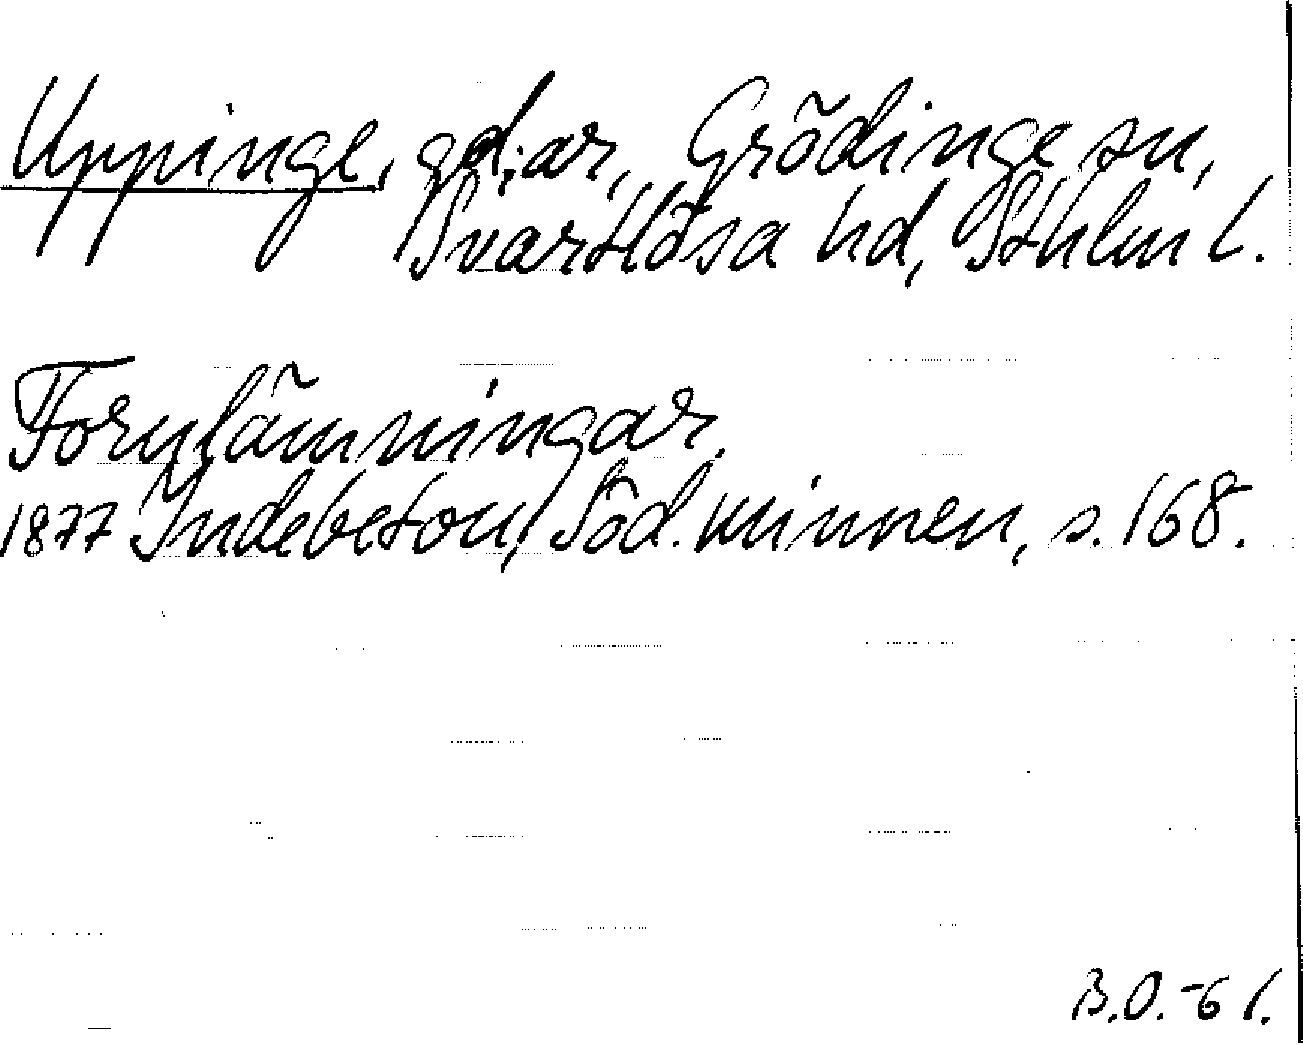 Uppinge, gd:ar, Grödinge sn,
Svartlösa hd, Sthlm l.
Fornlämningar.
1877 Indebetou, Söd. minnen, s. 168.
B.O. -61.